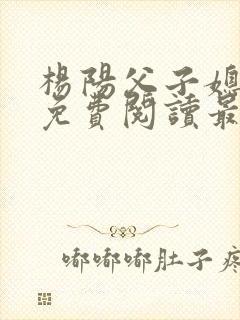 楊陽父子媳
免費閱讀最
嘟嘟嘟肚子疼